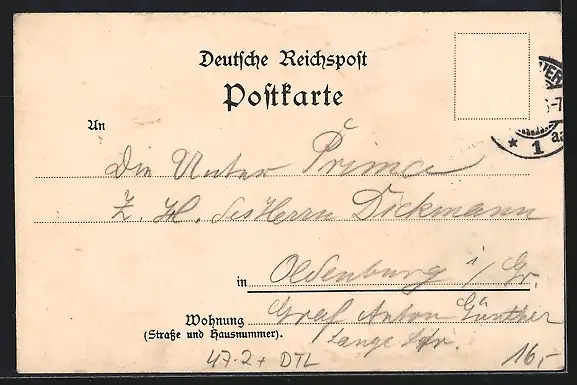 Deutsche Reichspost
Postkarte
An
Die Unter Prima
Z. H. des Herrn Dickmann
in Oldenburg i/Gr.
Wohnung Graf Anton Günther
(Straße und Hausnummer). Lange Str.
47.2+ DTL 16,-
VER
5-7
* 1 a